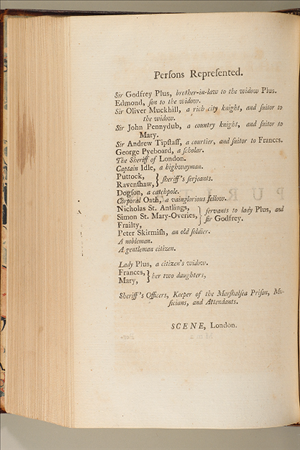 Persons Represented.
Sir Godfrey Plus, brother-in-law to the widow Plus.
Edmond, son to the widow.
Sir Oliver Muckhill, a rich city knight, and suitor to
the widow.
Sir John Pennydub, a country knight, and suitor to
Mary.
Sir Andrew Tipstaff, a courtier, and suitor to Frances.
George Pyeboard, a scholar.
The Sheriff of London.
Captain Idle, a highwayman.
Puttock, } sheriff's serjeants.
Ravenshaw,
Dogson, a catchpole.
Corporal Oath, a vainglorious fellow.
Nicholas St. Antlings, } servants to lady Plus, and
Simon St. Mary-Overies, sir Godfrey.
Frailty,
Peter Skirmish, an old soldier.
A nobleman.
A gentleman citizen.
Lady Plus, a citizen's widow.
Frances, } her two daughters,
Mary,
Sheriff's Officers, Keeper of the Marshalsea Prison, Mu-
sicians, and Attendants.
SCENE, London.